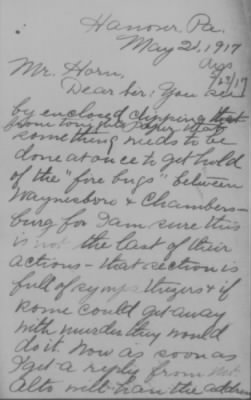 Hanover Pa.
May 21, 1917
Mr. Horn,
Dear Sir: You see
by enclosed clipping that
from tonight's paper that
something needs to be
done at once to get hold
of the "fire bugs" between
Waynesboro & Chambers-
burg for I am sure this
is not the last of their
actions - that section is
full of sympathizers & if
some could get away
with murder they would
do it. Now as soon as
I get a reply from Mt.
Alto will have the address